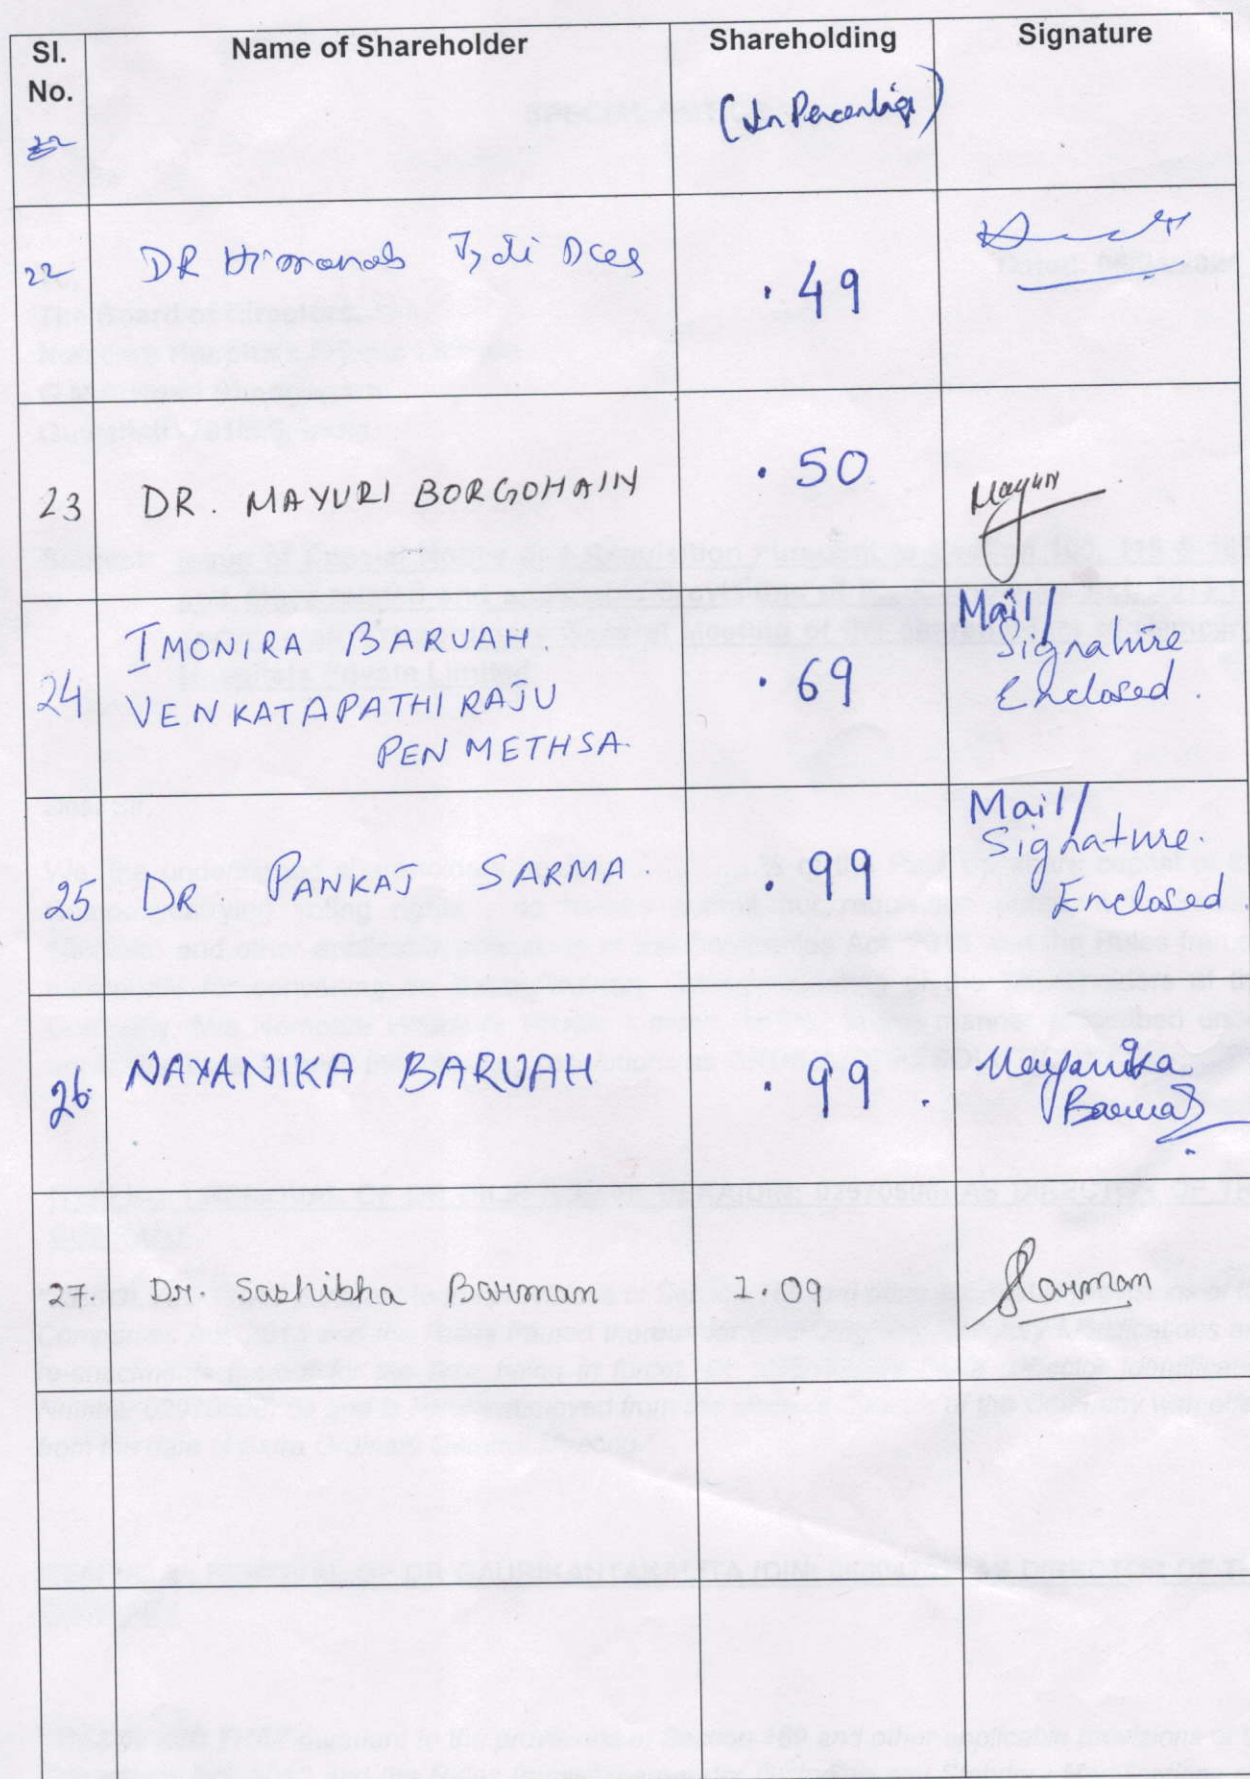 Sl. No.
Name of Shareholder
Shareholding
(In Percentage)
Signature
22
22
DR Himanab Jyoti Das
.49
23
DR. MAYURI BORGOHAIN
.50
Mayuri
24
IMONIRA BARUAH.
VENKATAPATHI RAJU
PENMETHSA.
.69
Mail/
Signature
Enclosed.
25
DR PANKAJ SARMA.
.99
Mail/
Signature.
Enclosed.
26.
NAYANIKA BARUAH
.99.
Nayanika
Baruah
27.
Dr. Sashibha Barman
1.09
Barman